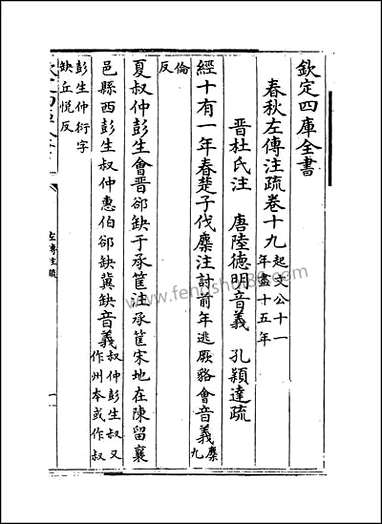 欽定四庫全書
春秋左傳注疏卷十九起文公十一年盡十五年
晉杜氏注 唐陸德明音義 孔穎達疏
經十有一年春楚子伐麇注討前年逃厥貉會音義麇九
倫反
夏叔仲彭生會晉郤缺于承筐注承筐宋地在陳留襄
邑縣西彭生叔仲惠伯郤缺冀缺音義叔仲彭生叔又作州本或作叔
彭生仲衍字缺丘悅反